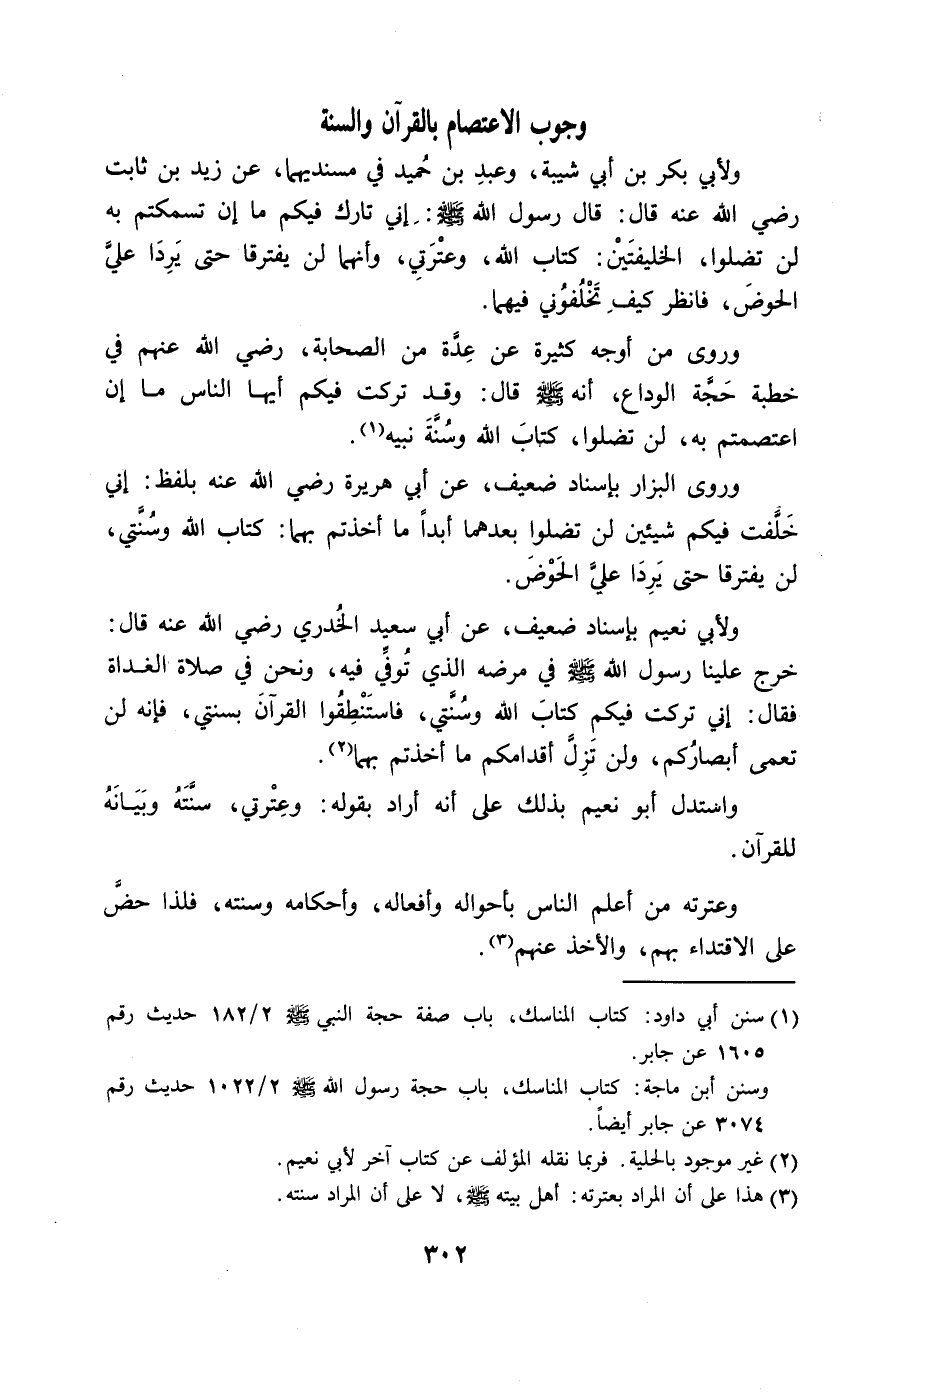 وجوب الاعتصام بالقرآن والسنة
ولأبي بكر بن أبي شيبة، وعبدِ بن حُميد في مسنديهما، عن زيد بن ثابت
رضي الله عنه قال: قال رسول الله ﷺ: إني تارك فيكم ما إن تسمكتم به
لن تضلوا، الخليفتَيْن: كتاب الله، وعتْرَتِي، وأنهما لن يفترقا حتى يَرِدَا عليَّ
الحوضَ، فانظر كيفِ تَخْلُفوُني فيهما.
وروى من أوجه كثيرة عن عِدَّة من الصحابة، رضي الله عنهم في
خطبة حَجَّة الوداع، أنه ﷺ قال: وقد تركت فيكم أيها الناس ما إن
اعتصمتم به، لن تضلوا، كتابَ الله وسُنَّةَ نبيه(١).
وروى البزار بإسناد ضعيف، عن أبي هريرة رضي الله عنه بلفظ: إني
خَلَّفت فيكم شيئين لن تضلوا بعدهما أبداً ما أخذتم بهما: كتاب الله وسُنَّتي،
لن يفترقا حتى يَرِدَا عليَّ الحَوْضَ.
ولأبي نعيم بإسناد ضعيف، عن أبي سعيد الخُدري رضي الله عنه قال:
خرج علينا رسول الله ﷺ في مرضه الذي تُوفِّي فيه، ونحن في صلاة الغداة
فقال: إني تركت فيكم كتابَ الله وسُنَّتي، فاستَنْطِقُوا القرآنَ بسنتي، فإنه لن
تعمى أبصارُكم، ولن تَزِلَّ أقدامكم ما أخذتم بهما(٢).
واستدل أبو نعيم بذلك على أنه أراد بقوله: وعِتْرتي، سنَّتَهُ وبَيَانَهُ
للقرآن.
وعترته من أعلم الناس بأحواله وأفعاله، وأحكامه وسنته، فلذا حضَّ
على الاقتداء بهم، والأخذ عنهم(٣).
(١) سنن أبي داود: كتاب المناسك، باب صفة حجة النبي ﷺ ١٨٢/٢ حديث رقم
١٦٠٥ عن جابر.
وسنن أبن ماجة: كتاب المناسك، باب حجة رسول الله ﷺ ١٠٢٢/٢ حديث رقم
٣٠٧٤ عن جابر أيضاً.
(٢) غير موجود بالحلية. فربما نقله المؤلف عن كتاب آخر لأبي نعيم.
(٣) هذا على أن المراد بعترته: أهل بيته ﷺ، لا على أن المراد سنته.
٣٠٢